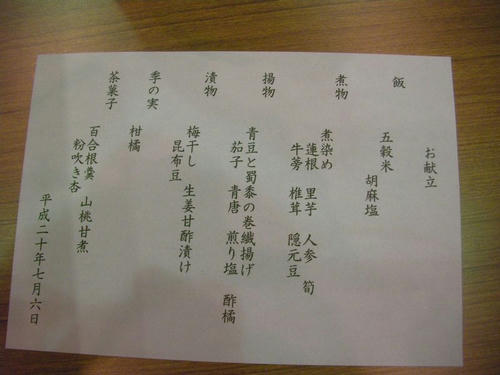 お献立
飯
五穀米 胡麻塩
煮物
煮染め
蓮根 里芋 人参 筍
牛蒡 椎茸 隠元豆
揚物
青豆と蜀黍の巻繊揚げ
茄子 青唐 煎り塩 酢橘
漬物
梅干し 生姜甘酢漬け
昆布豆
季の実
柑橘
茶菓子
百合根羹 山桃甘煮
粉吹き杏
平成二十年七月六日